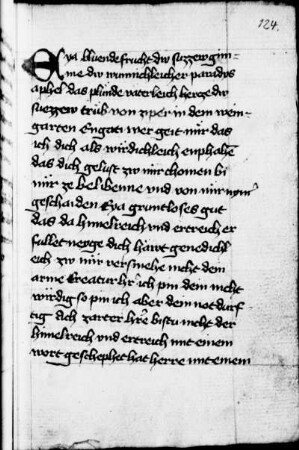 124.
Eya bluende frucht dw suzzew gim
me dw wunnichleicher paradys
aphel das plunde vaterleich hercze dw
suezzew trüb von zper in dem wein
garten Engati wer geit mir das
ich dich als wirdichleich enphahe
das dich gelust zw mir chomen bi
mir ze beleibenne und von mir nym̄
geschaiden Eya gruntloses gut
das da himelreich und ertreich er
fullet neyge dich hawt genedichl
eich zw mir versmehe nicht dein
arme kreatur hr̄ ich pin dein nicht
würdig so pin ich aber dein notdurf
tig ach zarter hr̄e bistu nicht der
himelreich und ertreich mit einem
wort geschephet hat herre mit einem